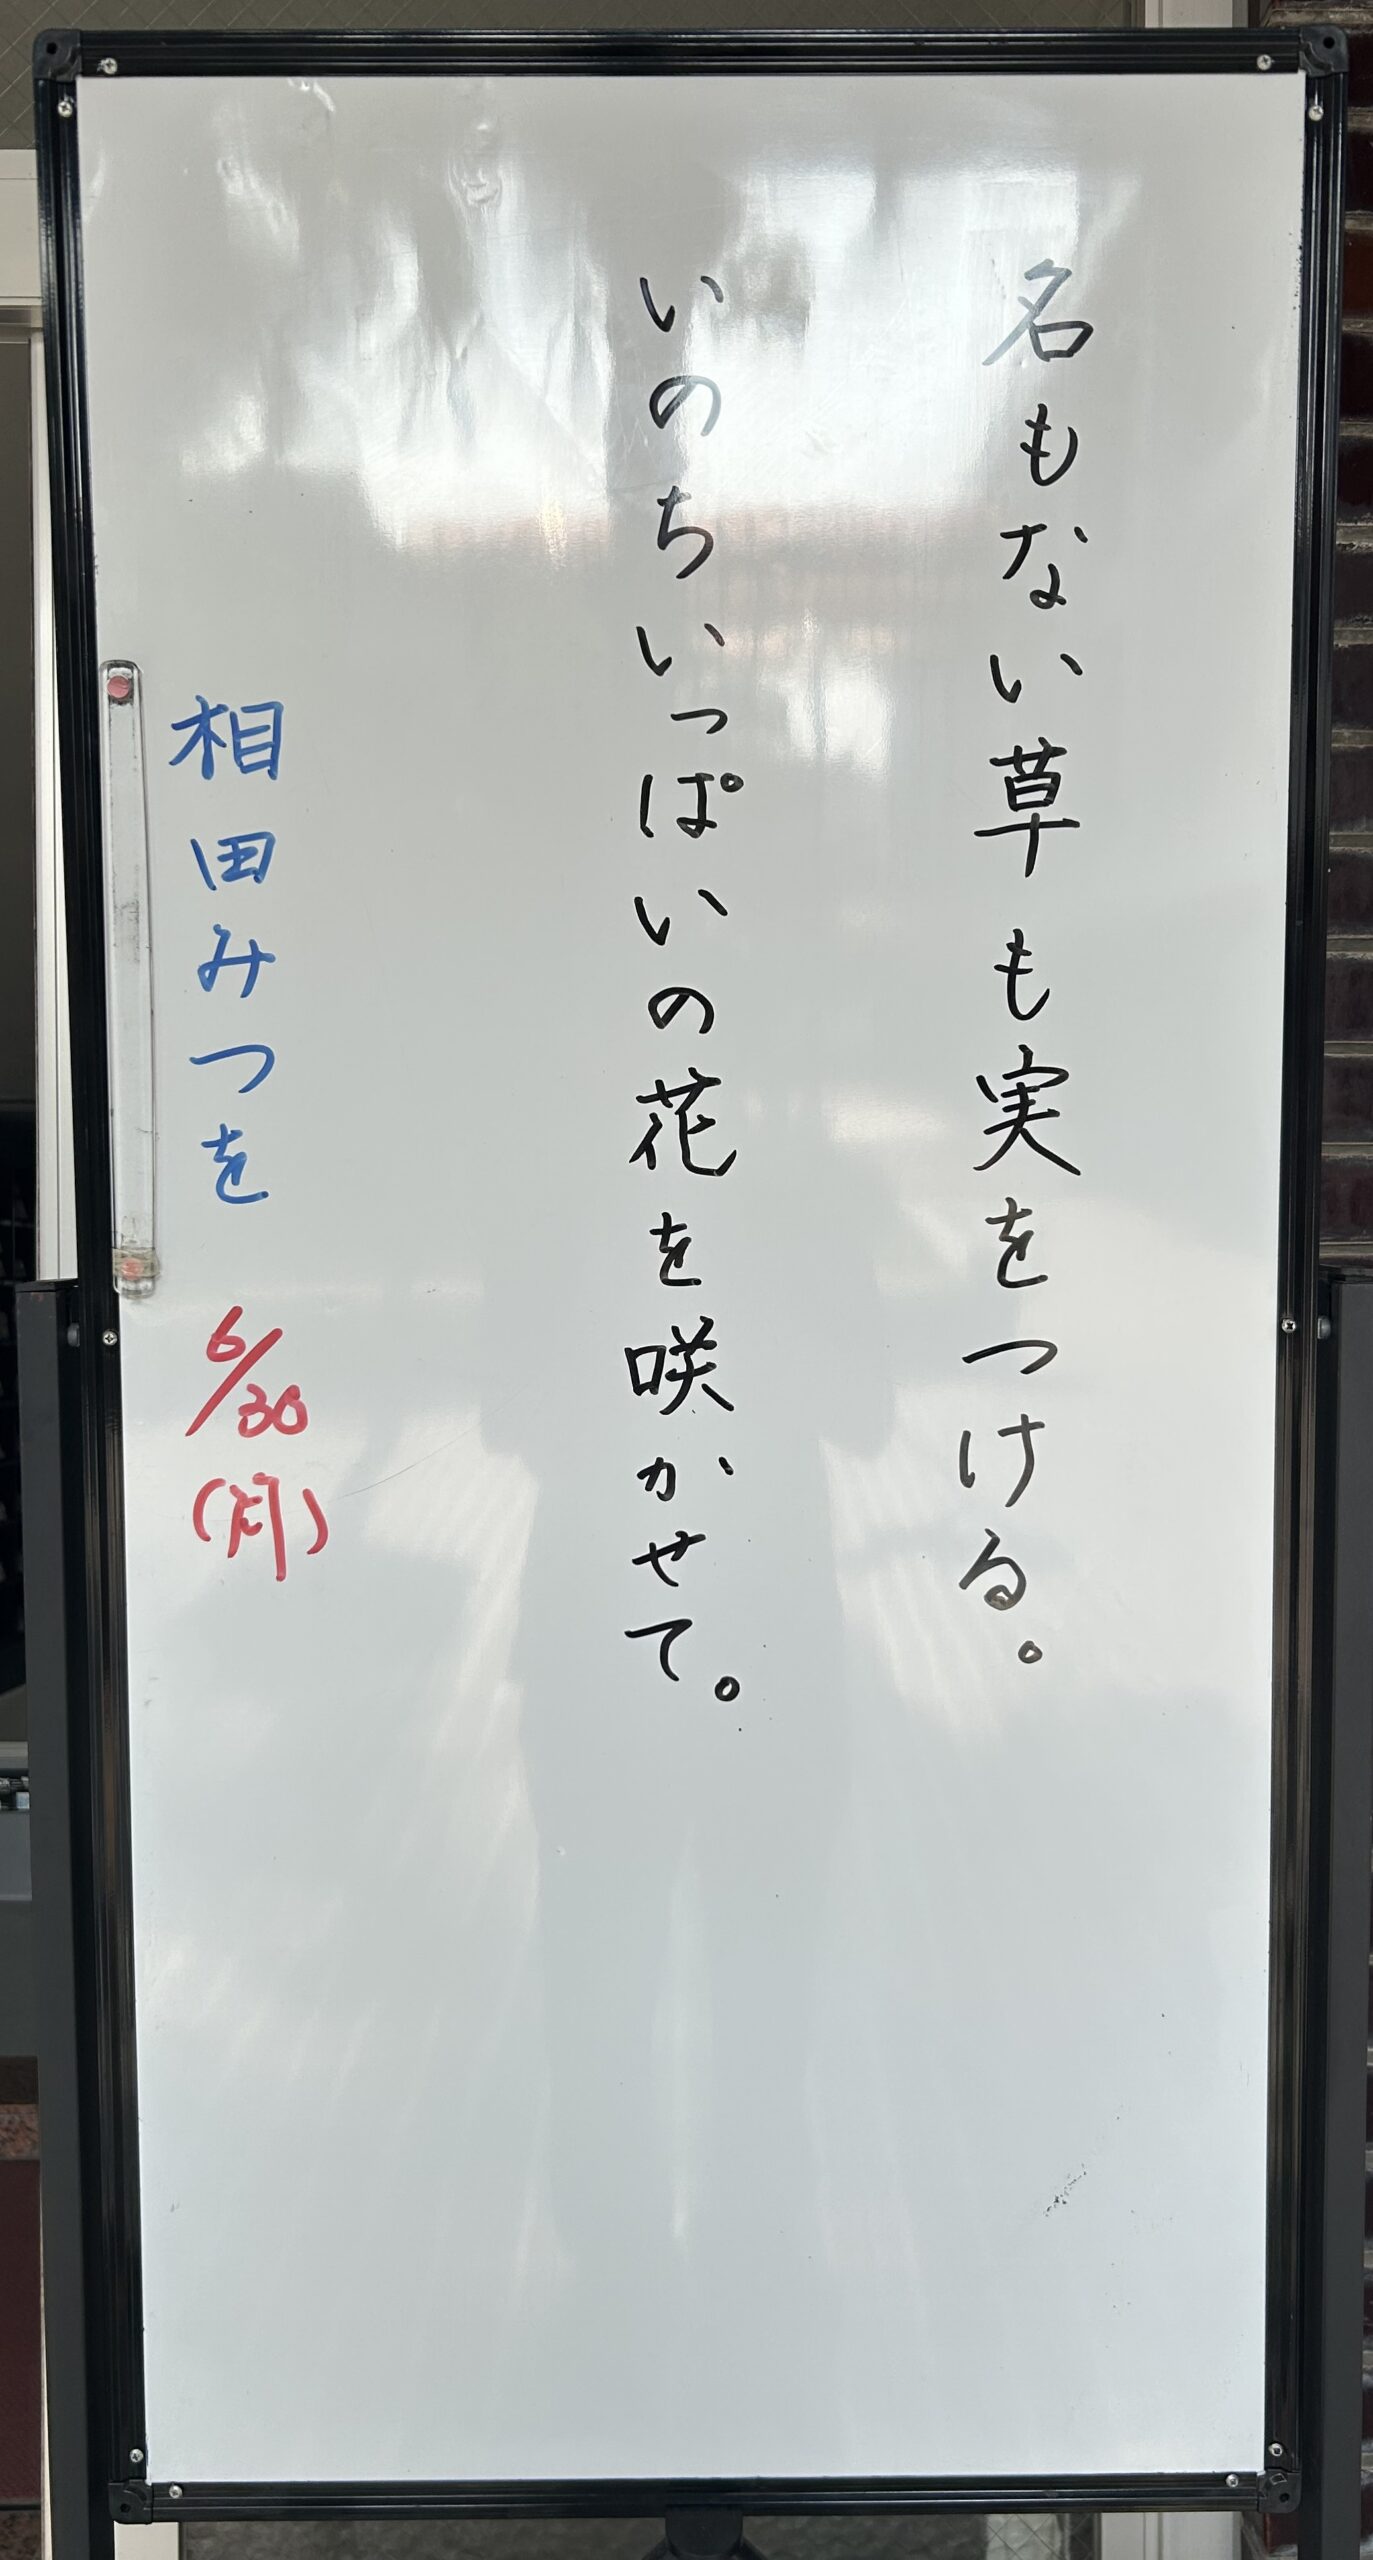 名もない草も実をつける。
いのちいっぱいの花を咲かせて。
相田みつを 6/30 (月)